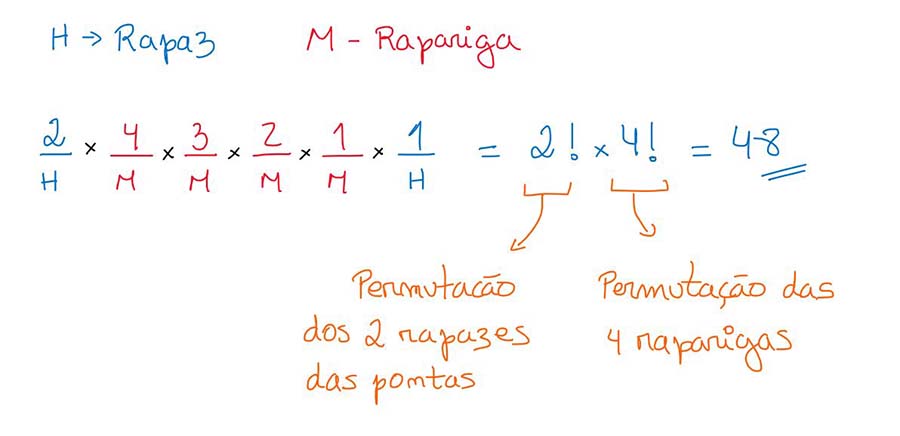 H → Rapaz M - Rapariga
2/H × 4/M × 3/M × 2/M × 1/M × 1/H = 2! × 4! = 48
Permutacão
dos 2 rapazes
das pontas
Permutação das
4 raparigas